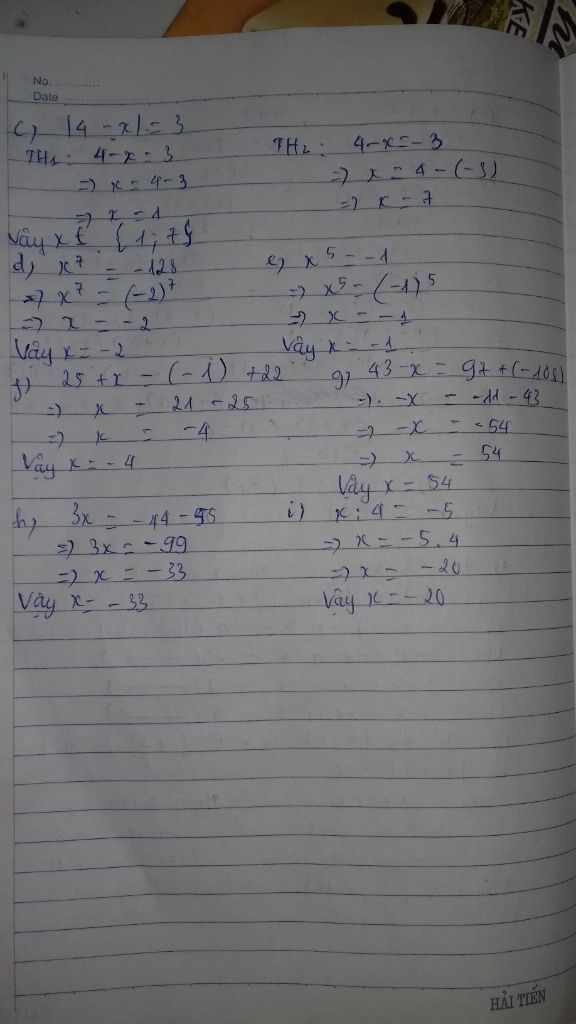 KE
No.
Date
c) |4 - x| = 3
TH1: 4-x = 3
=) x = 4-3
=) x = 1
TH2: 4-x = -3
=) x = 4 - (-3)
=) x = 7
Vậy x ∈ {1; 7}
d) x⁷ = -128
=) x⁷ = (-2)⁷
=) x = -2
Vậy x = -2
e) x⁵ = -1
=) x⁵ = (-1)⁵
=) x = -1
Vậy x = -1
f) 25 + x = (-1) + 22
=) x = 21 - 25
=) x = -4
Vậy x = -4
g) 43 - x = 97 + (-108)
=) -x = -11 - 43
=) -x = -54
=) x = 54
Vậy x = 54
h) 3x = -44 - 55
=) 3x = -99
=) x = -33
Vậy x = -33
i) x : 4 = -5
=) x = -5 . 4
=) x = -20
Vậy x = -20
HẢI TIẾN